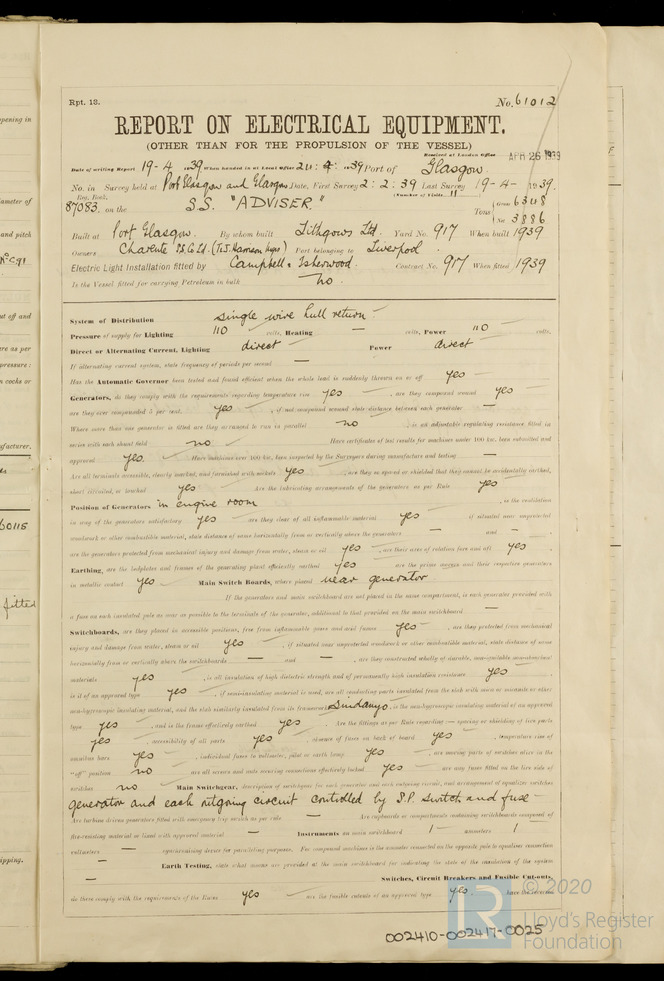 Rpt. 13.
No. 61012
REPORT ON ELECTRICAL EQUIPMENT.
(OTHER THAN FOR THE PROPULSION OF THE VESSEL)
Received at London Office APR 26 1939
Date of writing Report 19-4-1939 When handed in at Local Office 24: 4: 1939 Port of Glasgow.
No. in Survey held at Port Glasgow and Glasgow Date, First Survey 2: 2: 39 Last Survey 19-4-1939.
Reg. Book. (Number of Visits 11)
87083. on the S.S. "ADVISER" Tons { Gross 6348
Net 3886
Built at Port Glasgow. By whom built Lithgows Ltd. Yard No. 917 When built 1939
Owners Charente S.S. Co Ld. (T. & J. Harrison Mgrs) Port belonging to Liverpool
Electric Light Installation fitted by Campbell & Isherwood. Contract No. 917 When fitted 1939
Is the Vessel fitted for carrying Petroleum in bulk no.
System of Distribution single wire hull return
Pressure of supply for Lighting 110 volts, Heating — volts, Power 110 volts.
Direct or Alternating Current, Lighting direct Power direct
If alternating current system, state frequency of periods per second —
Has the Automatic Governor been tested and found efficient when the whole load is suddenly thrown on or off yes
Generators, do they comply with the requirements regarding temperature rise yes, are they compound wound yes
are they over compounded 5 per cent. yes, if not compound wound state distance between each generator —
Where more than one generator is fitted are they arranged to run in parallel no, is an adjustable regulating resistance fitted in
series with each shunt field no Have certificates of test results for machines under 100 kw. been submitted and
approved yes. Have machines over 100 kw. been inspected by the Surveyors during manufacture and testing —
Are all terminals accessible, clearly marked, and furnished with sockets yes, are they so spaced or shielded that they cannot be accidentally earthed,
short circuited, or touched yes Are the lubricating arrangements of the generators as per Rule yes
Position of Generators in engine room, is the ventilation
in way of the generators satisfactory yes are they clear of all inflammable material yes if situated near unprotected
woodwork or other combustible material, state distance of same horizontally from or vertically above the generators — and —
are the generators protected from mechanical injury and damage from water, steam or oil yes, are their axes of rotation fore and aft yes.
Earthing, are the bedplates and frames of the generating plant efficiently earthed yes are the prime movers and their respective generators
in metallic contact yes Main Switch Boards, where placed near generator
If the generators and main switchboard are not placed in the same compartment, is each generator provided with
a fuse on each insulated pole as near as possible to the terminals of the generator, additional to that provided on the main switchboard —
Switchboards, are they placed in accessible positions, free from inflammable gases and acid fumes yes, are they protected from mechanical
injury and damage from water, steam or oil yes, if situated near unprotected woodwork or other combustible material, state distance of same
horizontally from or vertically above the switchboards — and —, are they constructed wholly of durable, non-ignitable non-absorbent
materials yes, is all insulation of high dielectric strength and of permanently high insulation resistance yes
is it of an approved type yes, if semi-insulating material is used, are all conducting parts insulated from the slab with mica or micanite or other
non-hygroscopic insulating material, and the slab similarly insulated from its framework Sindanyo, is the non-hygroscopic insulating material of an approved
type yes, and is the frame effectively earthed yes Are the fittings as per Rule regarding:— spacing or shielding of live parts
yes, accessibility of all parts yes, absence of fuses on back of board yes, temperature rise of
omnibus bars yes, individual fuses to voltmeter, pilot or earth lamp yes, are moving parts of switches alive in the
"off" position no are all screws and nuts securing connections effectively locked yes are any fuses fitted on the live side of
switches no Main Switchgear, description of switchgear for each generator and each outgoing circuit, and arrangement of equalizer switches
generator and each outgoing circuit controlled by S.P. switch and fuse
Are turbine driven generators fitted with emergency trip switch as per rule — Are cupboards or compartments containing switchboards composed of
fire-resisting material or lined with approved material — Instruments on main switchboard 1 ammeters 1
voltmeters — synchronising device for paralleling purposes. For compound machines is the ammeter connected on the opposite pole to equaliser connection
— Earth Testing, state what means are provided at the main switchboard for indicating the state of the insulation of the system
—
Switches, Circuit Breakers and Fusible Cut-outs,
do these comply with the requirements of the Rules yes are the fusible cutouts of an approved type yes. have the reversed
© 2020
LR
Lloyd's Register
Foundation
002410-002417-0025
pening in
ameter of
and pitch
ut off and
ure as per
pressure:
n cocks or
ufacturer.
60115
fitted
ipping.